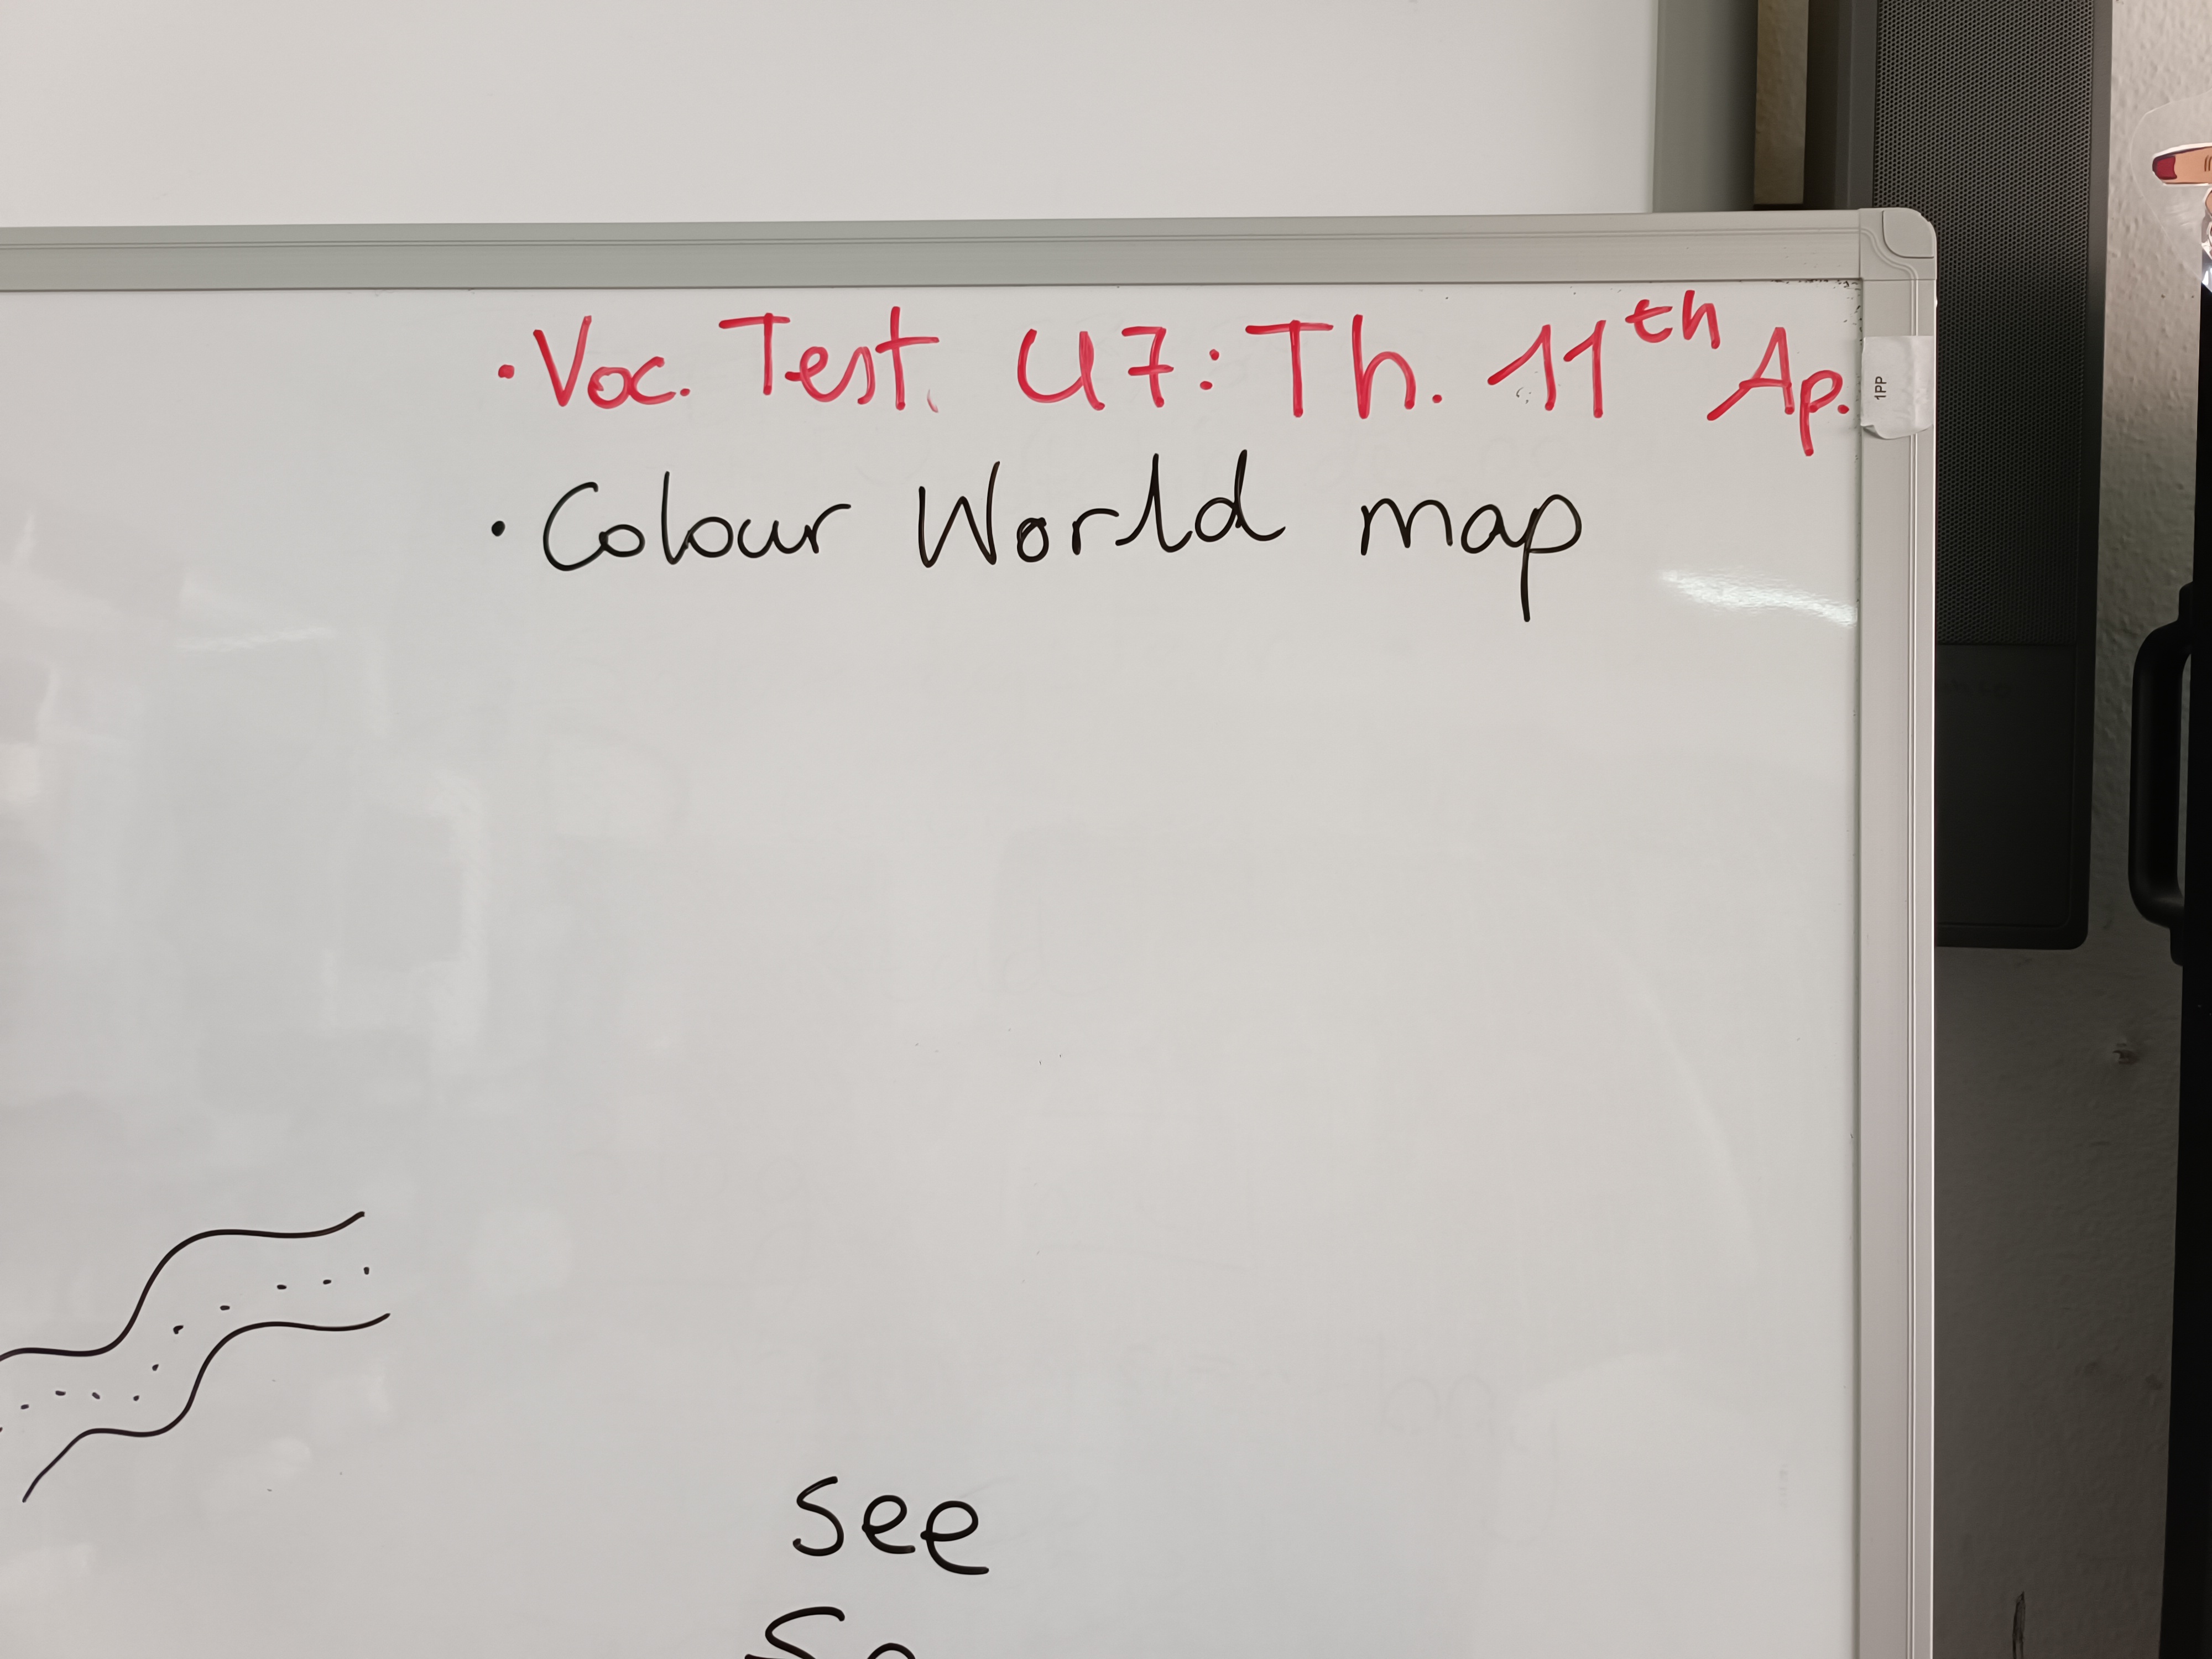 · Voc. Test U7: Th. 11th Ap.
1PP
· Colour World map
see